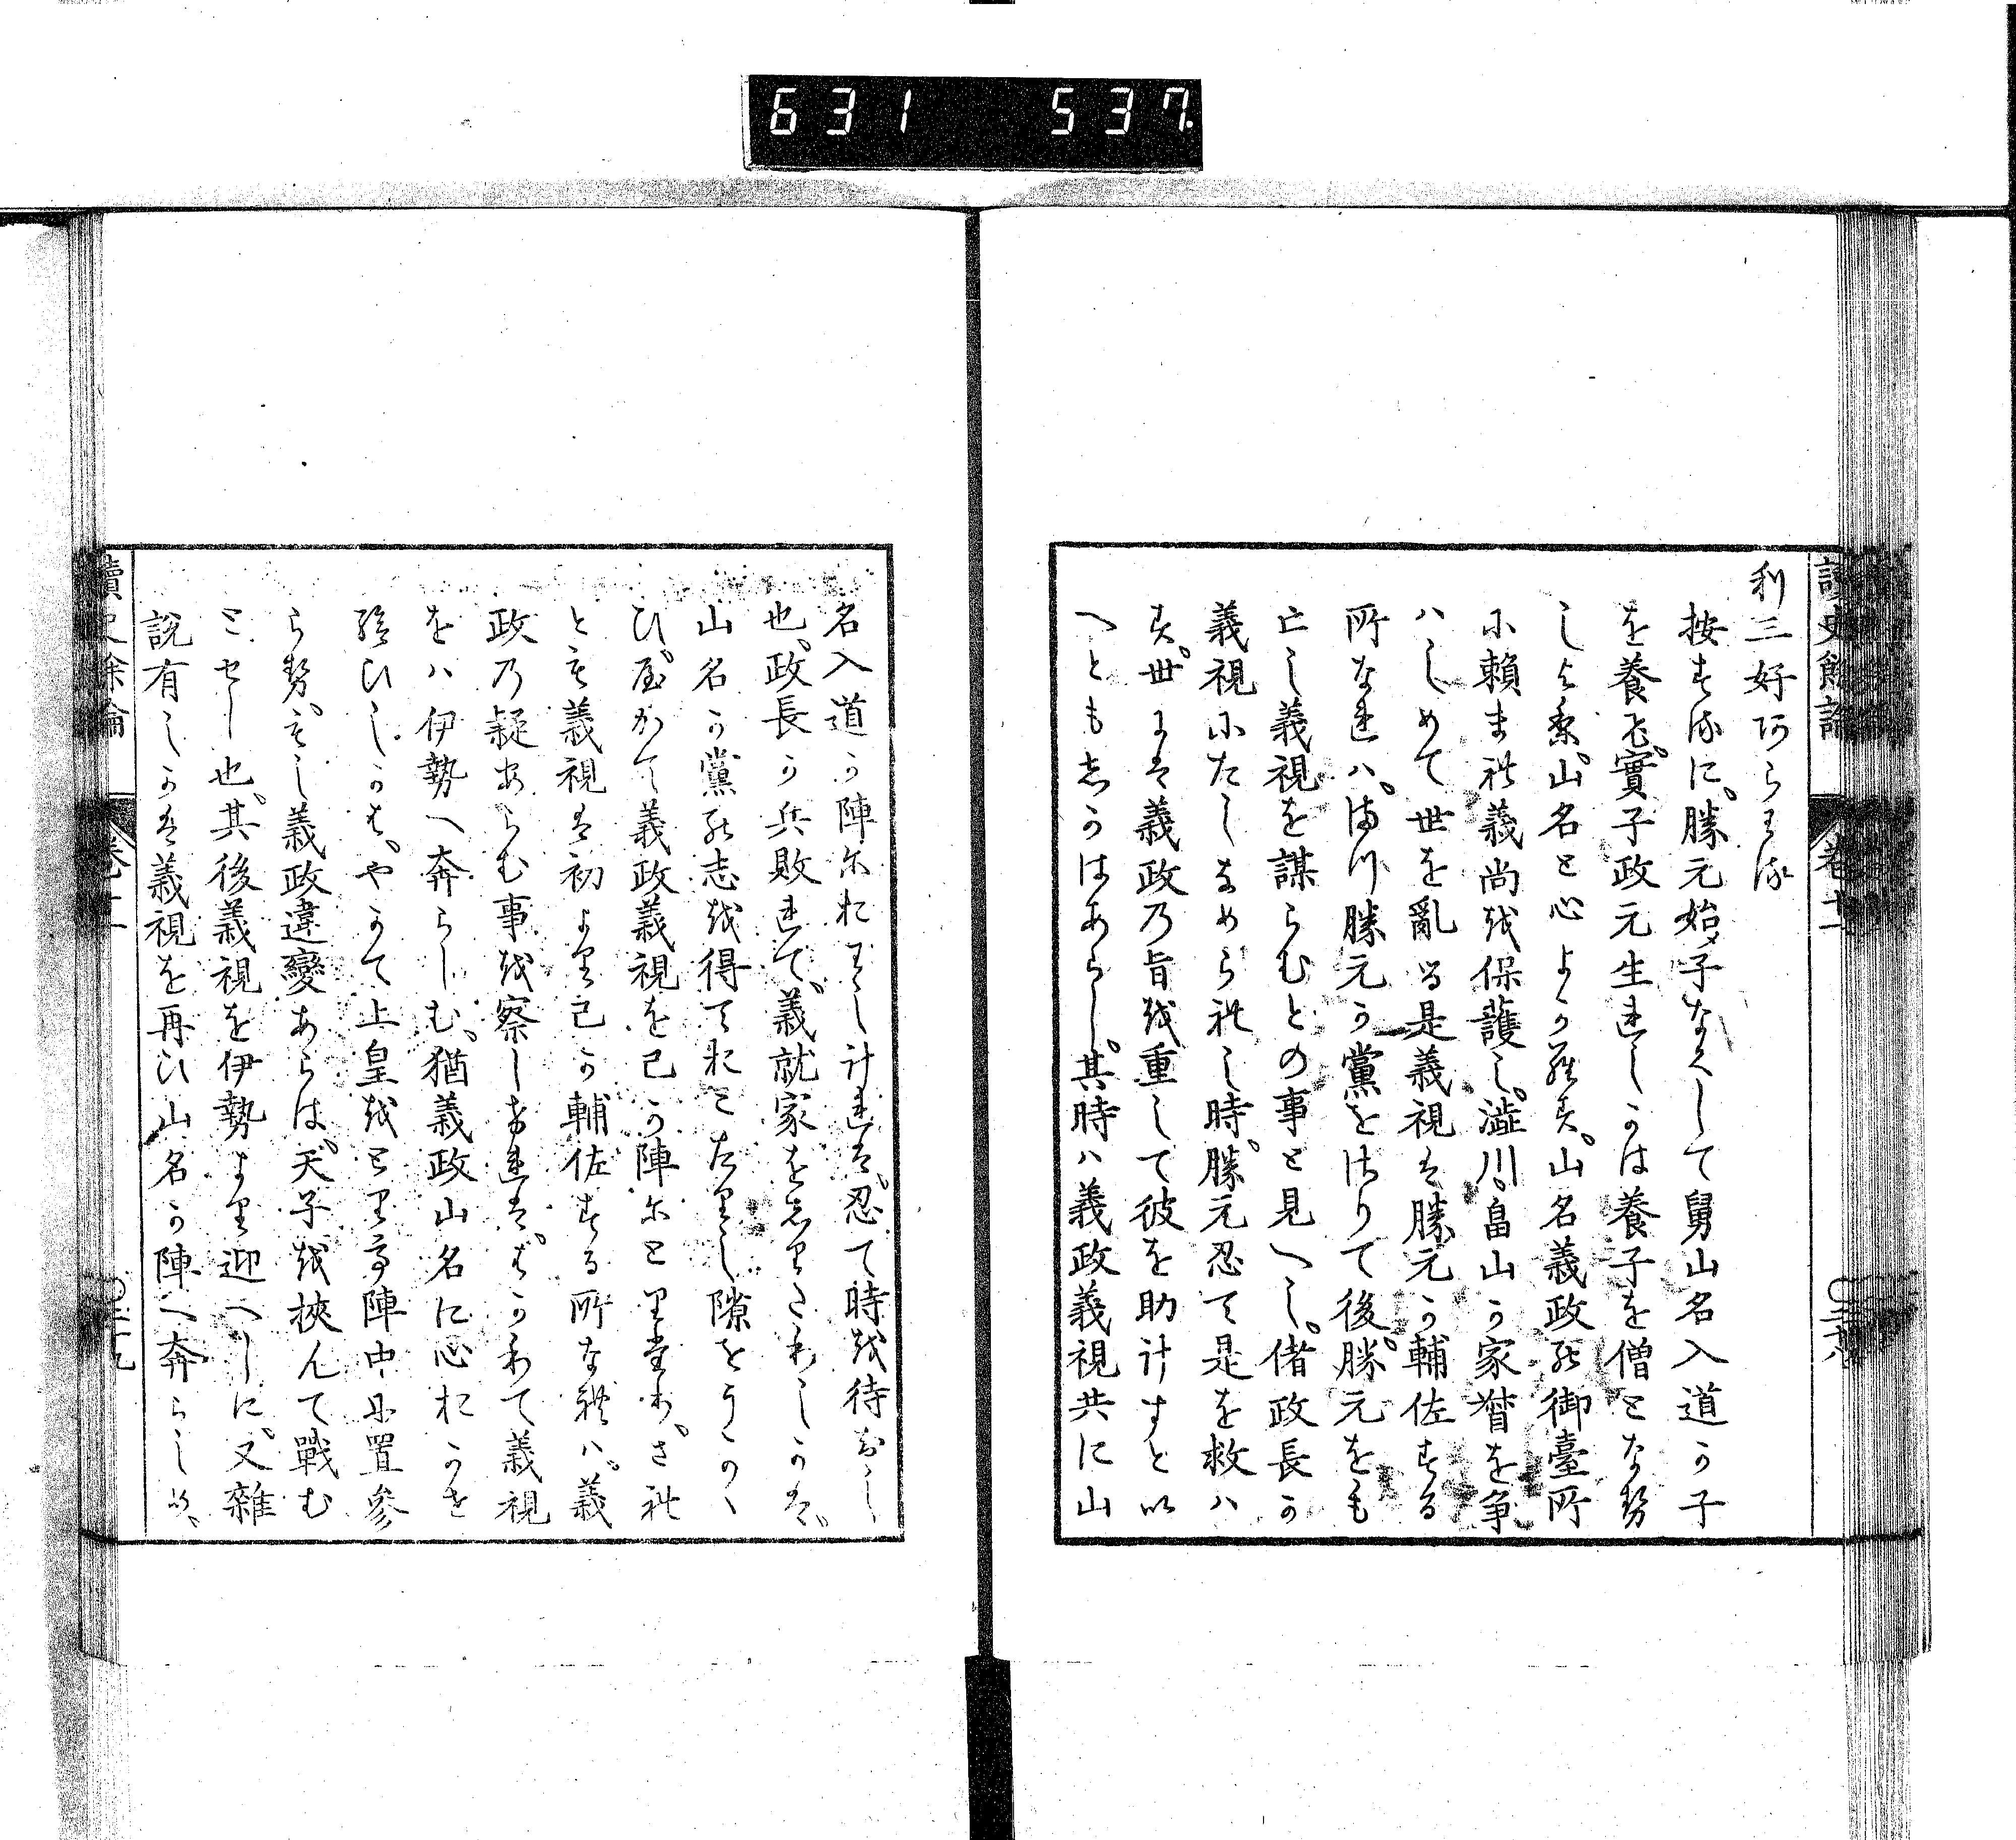 631 537
讀史餘論 卷十一 〇三十八
利三好ニあらそふ
按するに。勝元始メ子なくして舅山名入道か子
を養ふ。實子政元生れしかは養子を僧となせ
しより。山名と心よからす。山名義政の御臺所
に頼まれ義尚を保護し。澁川。畠山か家督を爭
ハしめて世を亂る是義視は勝元か輔佐する
所なれハ。まつ勝元か黨をさりて後。勝元をも
亡し義視を謀らむとの事と見へし。偖政長か
義視にたしなめられし時。勝元忍て是を救ハ
す。世には義政の旨を重して彼を助けすとい
へともしかはあらし。其時ハ義政義視共に山
名入道か陣におはしけれは。忍て時を待おし
也。政長か兵敗れて。義就家をしりたりしかは。
山名か黨の志を得ておこたりし隙をうかゝ
ひ。むかへて義政義視を己か陣にとりたり。され
とも義視は初より己か輔佐する所なれハ。義
政の疑あらむ事を察しけれは。はかりて義視
をハ伊勢へ奔らしむ。猶義政山名に心おかせ
給ひしかは。やかて上皇をとり奉陣中に置參
らせ。もし義政違變あらは。天子を挾んて戰む
とせし也。其後義視を伊勢より迎へしに。又雜
説有しかは義視を再ひ山名か陣へ奔らし以。
讀史餘論 卷十一 〇三十九